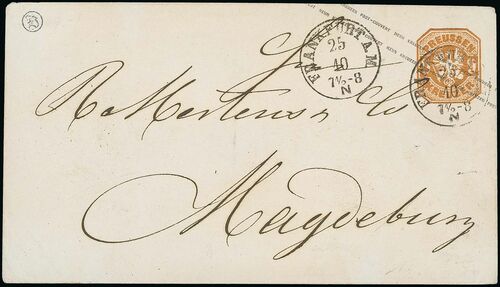 PREUSSEN
FRANKFURT A. M
25
10
7½-8
N
25
10
7½-8
N
R Mertens & Co
Magdeburg